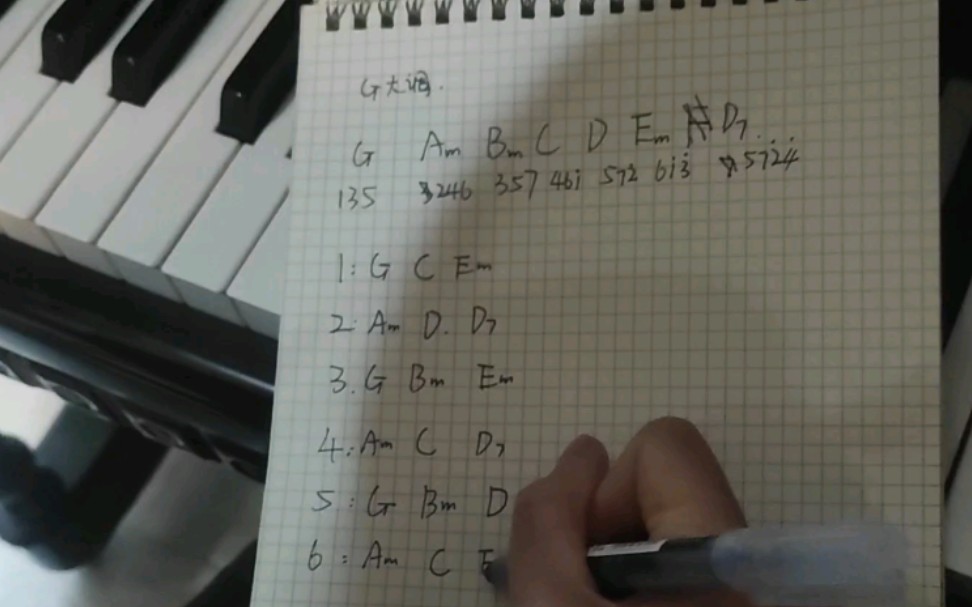 G大调.
G Am Bm C D Em D7.
135 246 357 461̇ 572̇ 61̇3̇ 572̇4̇
1: G C Em
2: Am D. D7
3. G Bm Em
4: Am C D7
5: G Bm D
6: Am C